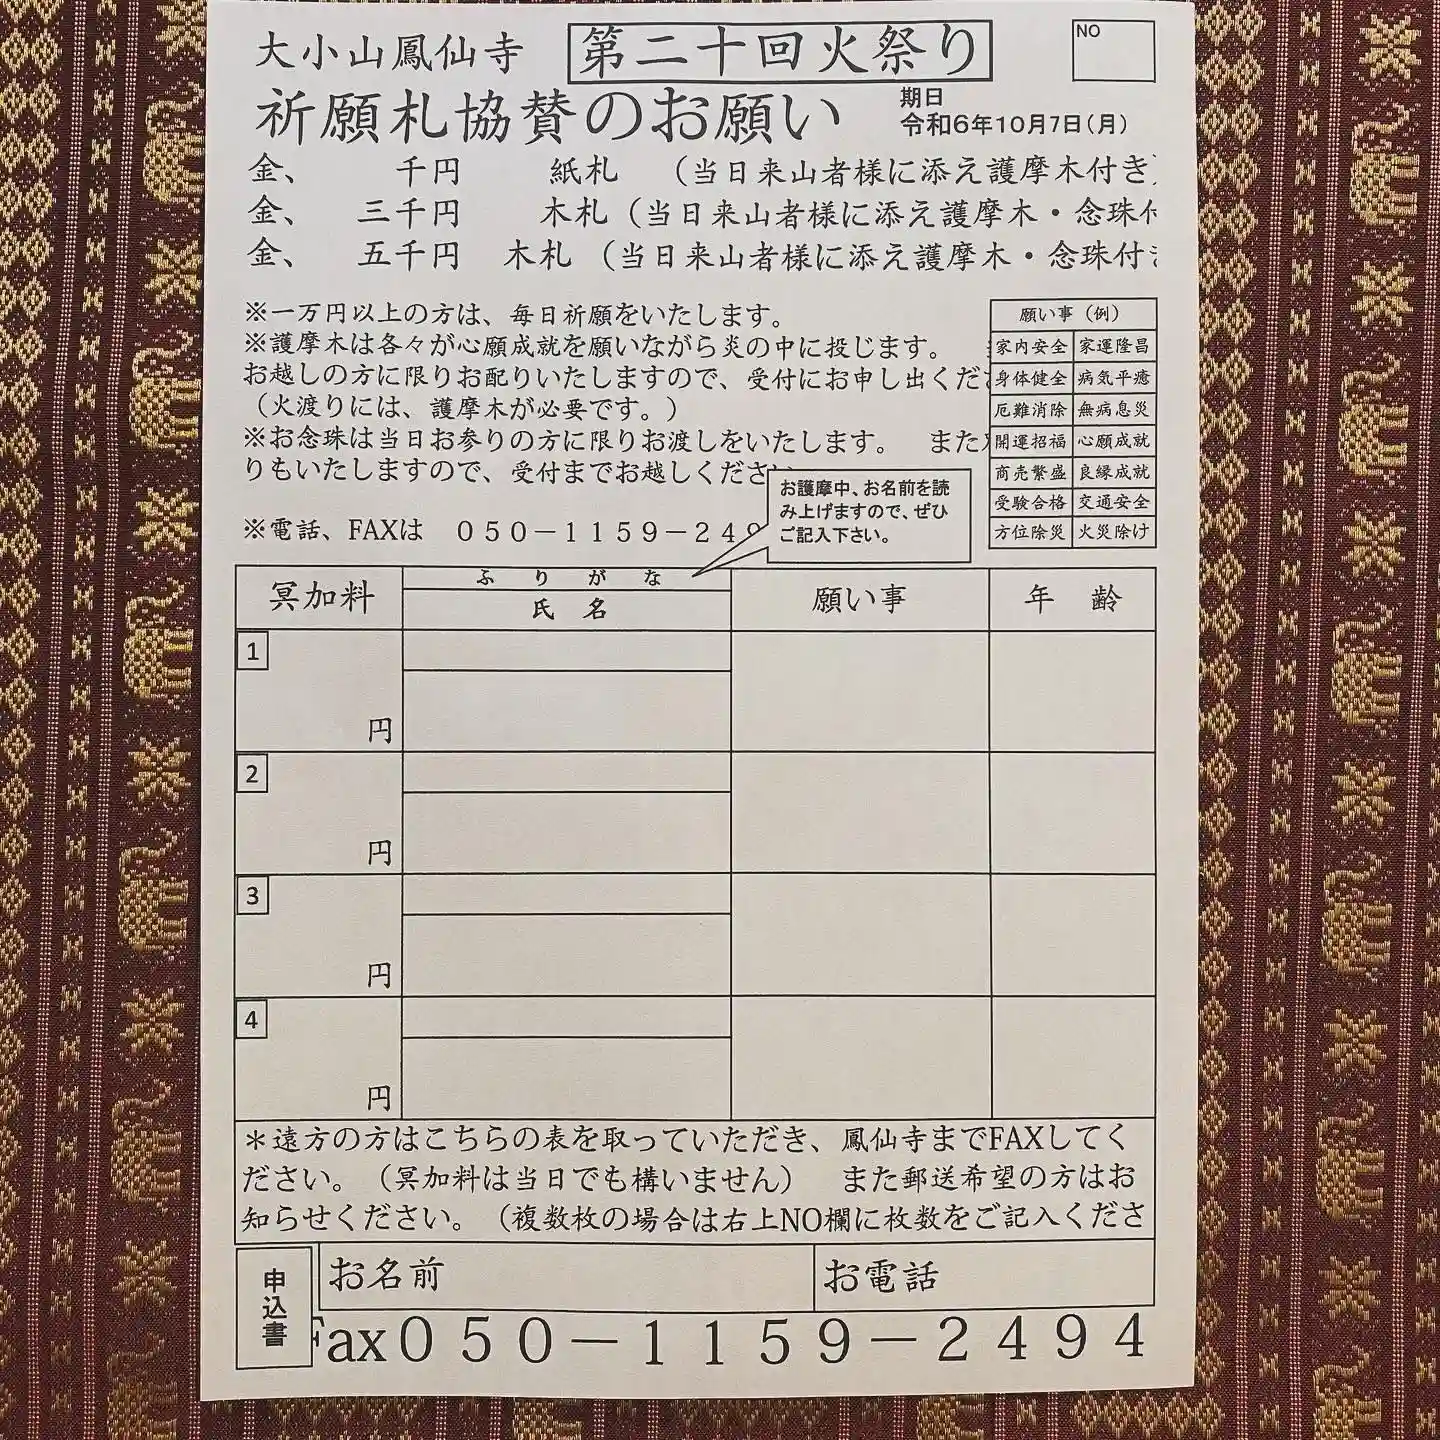 大小山鳳仙寺 第二十回火祭り NO
祈願札協賛のお願い
期日
令和6年10月7日(月)
金、 千円 紙札 （当日来山者様に添え護摩木付き）
金、 三千円 木札（当日来山者様に添え護摩木・念珠付
金、 五千円 木札 （当日来山者様に添え護摩木・念珠付き
※一万円以上の方は、毎日祈願をいたします。
※護摩木は各々が心願成就を願いながら炎の中に投じます。
お越しの方に限りお配りいたしますので、受付にお申し出くださ
（火渡りには、護摩木が必要です。）
※お念珠は当日お参りの方に限りお渡しをいたします。 また
りもいたしますので、受付までお越しくださ
※電話、FAXは 050－1159－249
願い事（例）
家内安全 家運隆昌
身体健全 病気平癒
厄難消除 無病息災
開運招福 心願成就
商売繁盛 良縁成就
受験合格 交通安全
方位除災 火災除け
お護摩中、お名前を読
み上げますので、ぜひ
ご記入下さい。
冥加料 ふりがな 願い事 年 齢
氏 名
1
円
2
円
3
円
4
円
＊遠方の方はこちらの表を取っていただき、鳳仙寺までFAXしてく
ださい。（冥加料は当日でも構いません） また郵送希望の方はお
知らせください。（複数枚の場合は右上NO欄に枚数をご記入くださ
申込書 お名前 お電話
Fax050－1159－2494